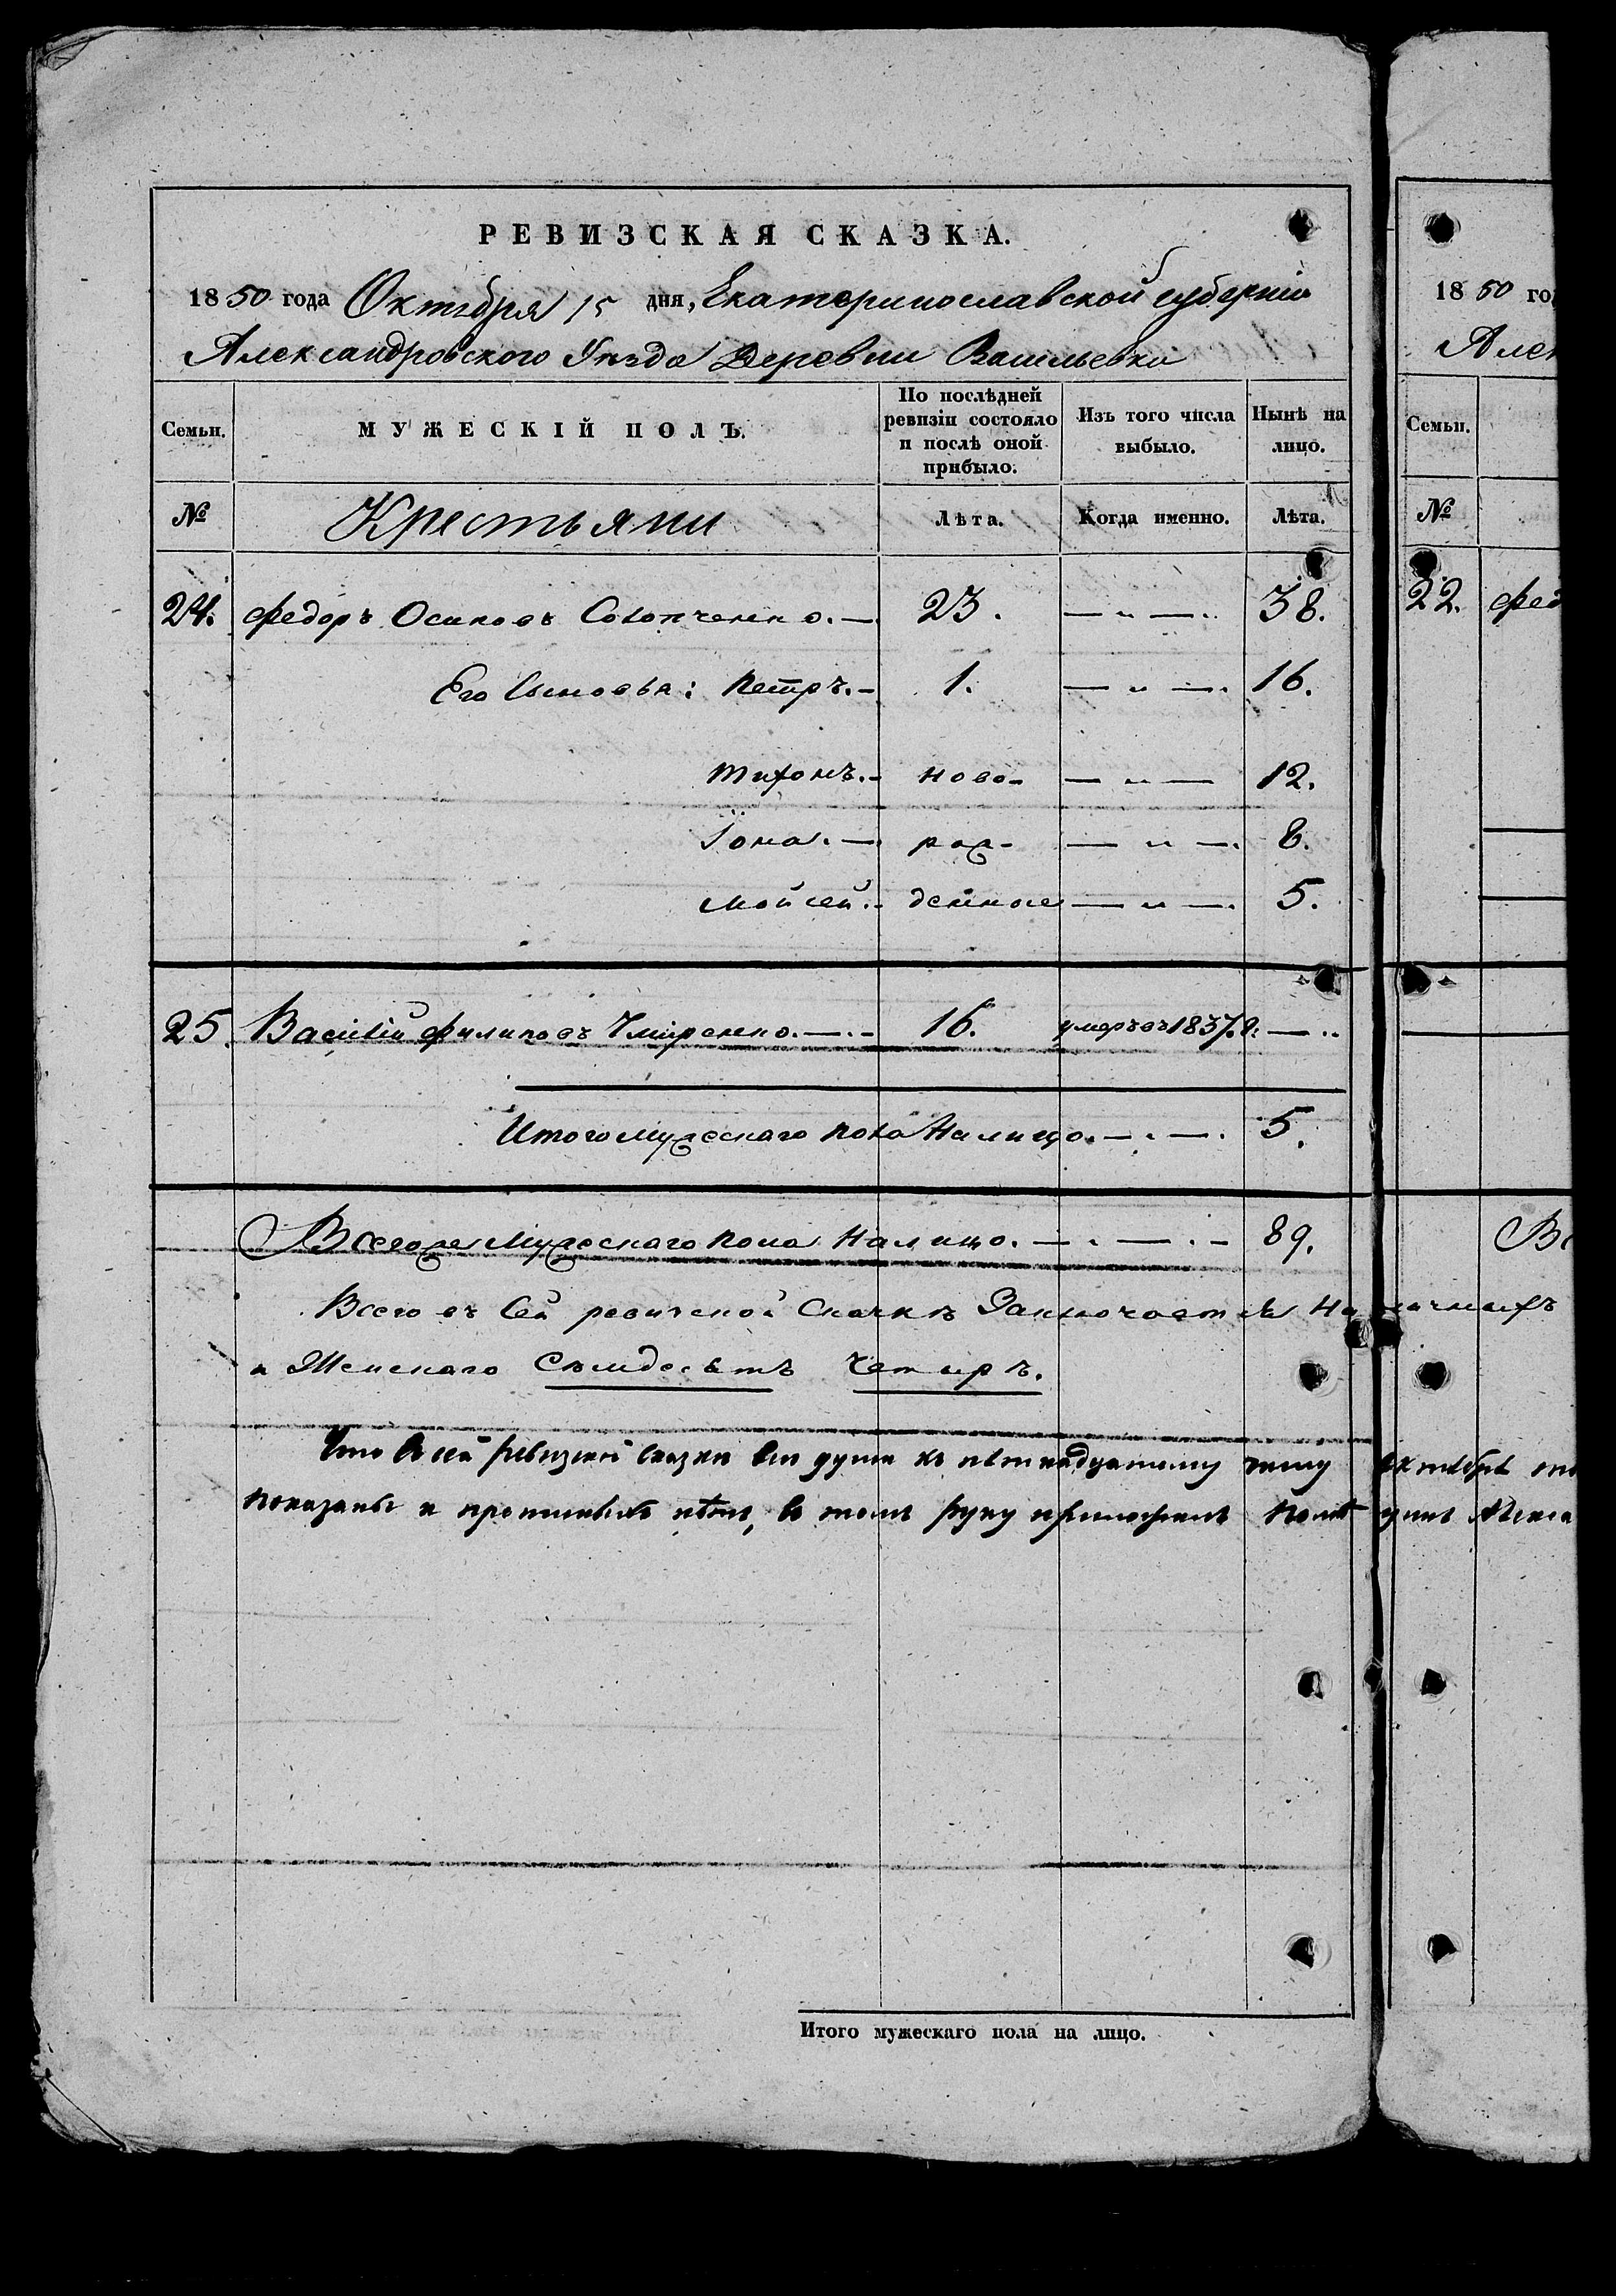 РЕВИЗСКАЯ СКАЗКА.
1850 года Октября 15 дня, Екатеринославской губерніи
Александровского Уѣзда Деревни Васильевки
Семьи.
МУЖЕСКІЙ ПОЛЪ.
По послѣдней ревизіи состояло и послѣ оной прибыло.
Изъ того числа выбыло.
Нынѣ на лицо.
№ Крестьяни Лѣта. Когда именно. Лѣта.
24. Федоръ Осиповъ 23. — „ —. 38.
Его Сыновья: Петръ.- 1. — „ —. 16.
Тихонъ.- ново- — „ — 12.
Іона. — рож- — „ —. 8.
Мойсей.- денные — „ —. 5.
25. Василій Филиповъ 16. умеръ въ 1837.г. — „
Итого мужескаго пола Налицо. — . — . 5.
Всегоже Мужескаго пола Налицо. — . — . - 89.
Всего въ Сей ревизской Сказкѣ Заключается Наличныхъ
и Женскаго Семдесятъ Четыръ.
Что въ сей ревизской сказки все души къ пятнадцатому числу октября
показаны и прописныхъ нѣтъ, въ томъ руку приложилъ
Итого мужескаго пола на лицо.
1850 го
Алек
Семьи.
№
22. Фед
Вс